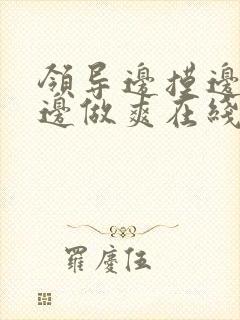 領导邊摸邊
邊做爽在綫
羅慶伍